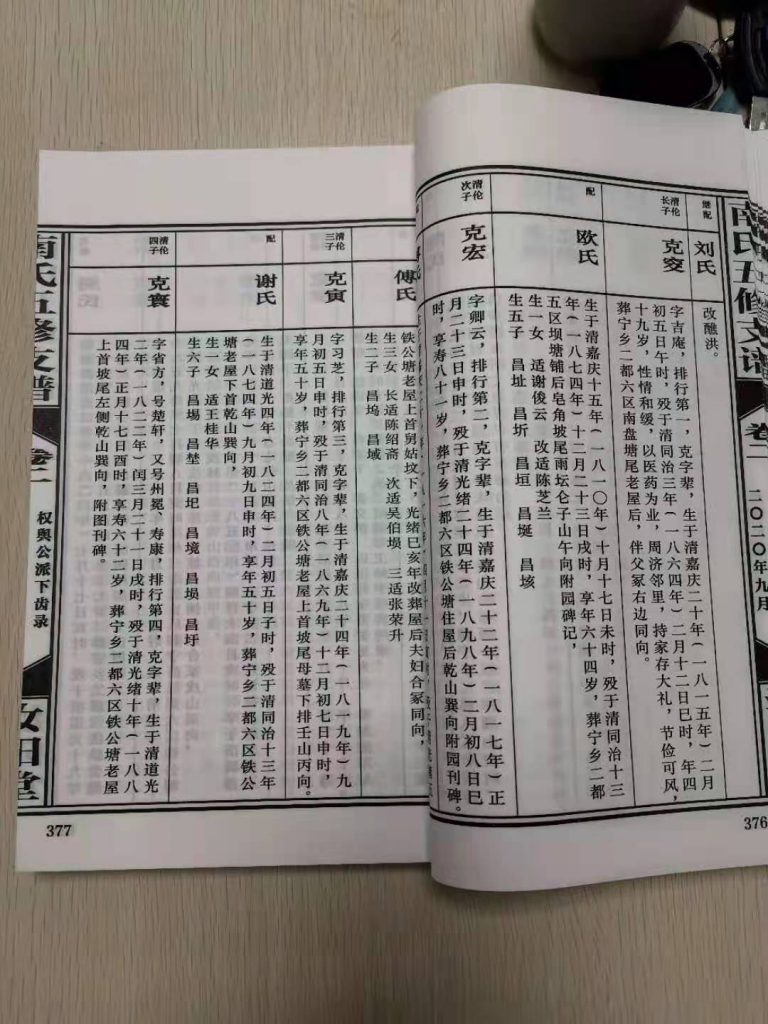 南氏五修支谱
卷二
二〇二〇年九月
376
继配
刘氏
改醮洪。
清伦
长子
克
字吉庵，排行第一，克字辈，生于清嘉庆二十年(一八一五年)二月
初五日午时，殁于清同治三年(一八六四年)二月十二日巳时，年四
十九岁，性情和缓，以医药为业，周济邻里，持家存大礼，节俭可风，
葬宁乡二都六区南盘塘尾老屋后，伴父冢右边同向。
配
欧氏
生于清嘉庆十五年(一八一〇年)十月十七日未时，殁于清同治十三
年(一八七四年)十二月二十三日戌时，享年六十四岁，葬宁乡二都
五区坝塘铺后皂角坡尾雨坛仑子山午向附园碑记，
生一女 适谢俊云 改适陈芝兰
生五子 昌址 昌圻 昌垣 昌埏 昌垓
清伦
次子
克宏
字卿云，排行第二，克字辈，生于清嘉庆二十二年(一八一七年)正
月二十三日申时，殁于清光绪二十四年(一八九八年)二月初八日巳
时，享寿八十一岁，葬宁乡二都六区铁公塘住屋后乾山巽向附园刊碑。
傅氏
铁公塘老屋上首舅姑坟下，光绪己亥年改葬屋后夫妇合冢同向，
生三女 长适陈绍斋 次适吴伯埙 三适张荣升
生二子 昌坞 昌域
清伦
三子
克寅
字习芝，排行第三，克字辈，生于清嘉庆二十四年(一八一九年)九
月初五日申时，殁于清同治八年(一八六九年)十二月初七日申时，
享年五十岁，葬宁乡二都六区铁公塘老屋上首坡尾母墓下排壬山丙向。
配
谢氏
生于清道光四年(一八二四年)二月初五日子时，殁于清同治十三年
(一八七四年)九月初九日申时，享年五十岁，葬宁乡二都六区铁公
塘老屋下首乾山巽向，
生一女 适王桂华
生六子 昌埸 昌埜 昌圯 昌境 昌埙 昌圩
清伦
四子
克寰
字省方，号楚轩，又号州冕、寿康，排行第四，克字辈，生于清道光
二年(一八二二年)闰三月二十一日戌时，殁于清光绪十年(一八八
四年)正月十七日酉时，享寿六十二岁，葬宁乡二都六区铁公塘老屋
上首坡尾左侧乾山巽向，附图刊碑。
南氏五修支谱
卷二
权舆公派下齿录
汝田堂
377